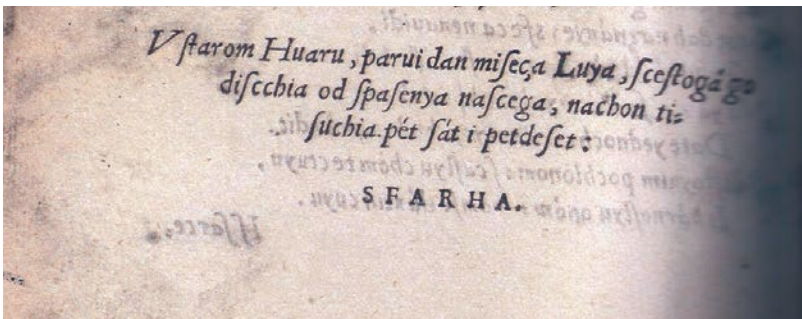 V ſtarom Huaru, parui dan miſeça Luya, ſceſtogá go
diſcchia od ſpaſenya naſcega, nachon ti⸗
ſuchia.pét ſát i petdeſet:
SFARHA.